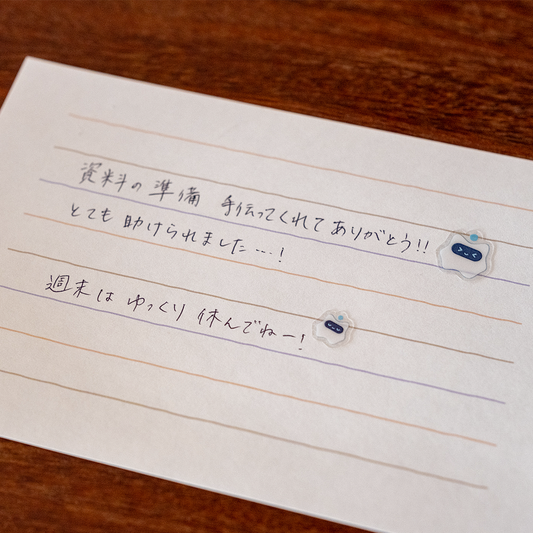 資料の準備 手伝ってくれてありがとう!!
とても助けられました…!
週末は ゆっくり 休んでねー!